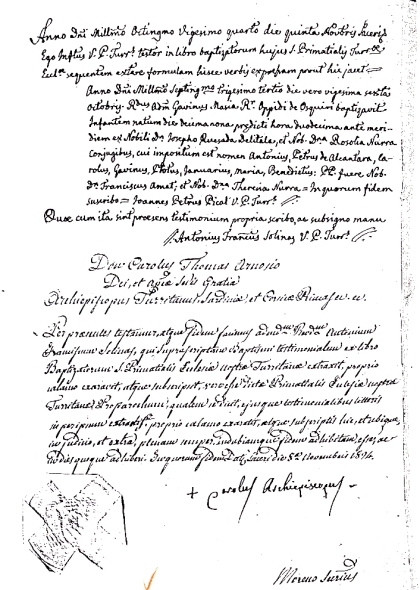 Anno Dñi Millmo Octingmo Vigesimo quarto die quinta Novbris Saceri
Ego Inftus V. P. Turr. testor in libro baptiptorum hujus S. Primatialis Turrae
Eclae sequentem extare formulam hisce verbis expressam prout hic jacet =
Anno Dñi Millmo Septingmo trigesimo tertio die vero vigesima sexta
Octobris. Rdus Adm Gavinus Maria Oppidi de Osquiri baptizavit
Infantem natum die decima nona predicti hora duodecima ante meri-
diem ex Nobili Dn. Josepho Quesada Delitala, et Nob. Dna Rosolia Nurra
Conjugibus, cui impositum est nomen Antonius, Petrus de Alcantara, Ca-
rolus, Gavinus, Januarius, Maria, Benedictus: PP. fuere Nob.
Dn. Franciscus Amat, et Nob. Dna Theresia Nurra = In quorum fidem
suscribo = Joannes Petrus Pical V. P. Turr.
Quae cum ita sint praesens testimonium propria scribo, ac subsigno manu
Antonius Francus Solinas V. P. Turr.
Don Carolus Thomas Arnosio
Dei, et Aplicae Sedis Gratia
Archiepiscopus Turritanus, Sardiniae, et Corsicae Primas etc. etc.
Per praesentes testamur, atque fidem facimus Antonium
Franciscum Solinas, qui suprascriptam Baptismi testimonialem ex libro
Baptizatorum S. Primatialis Ecclesiae nostrae Turritanae extraxit, proprio
calamo exaravit, atque subscripsit, Primatialis Ecclesiae nostrae
Turritanae, Proparochum, qualem se dicit, ejusque testimonialibus litteris
proprio calamo exaratis, atque subscriptis hic, et ubique,
in judicio, et extra, plenam semper, indubiamque fidem adhibitam esse, ac
in dies quoque adhiberi. In quorum fidem Dat. Saceri die 5a Novembris 1824.
+ Carolus Archiepiscopus
Moreno Secrius